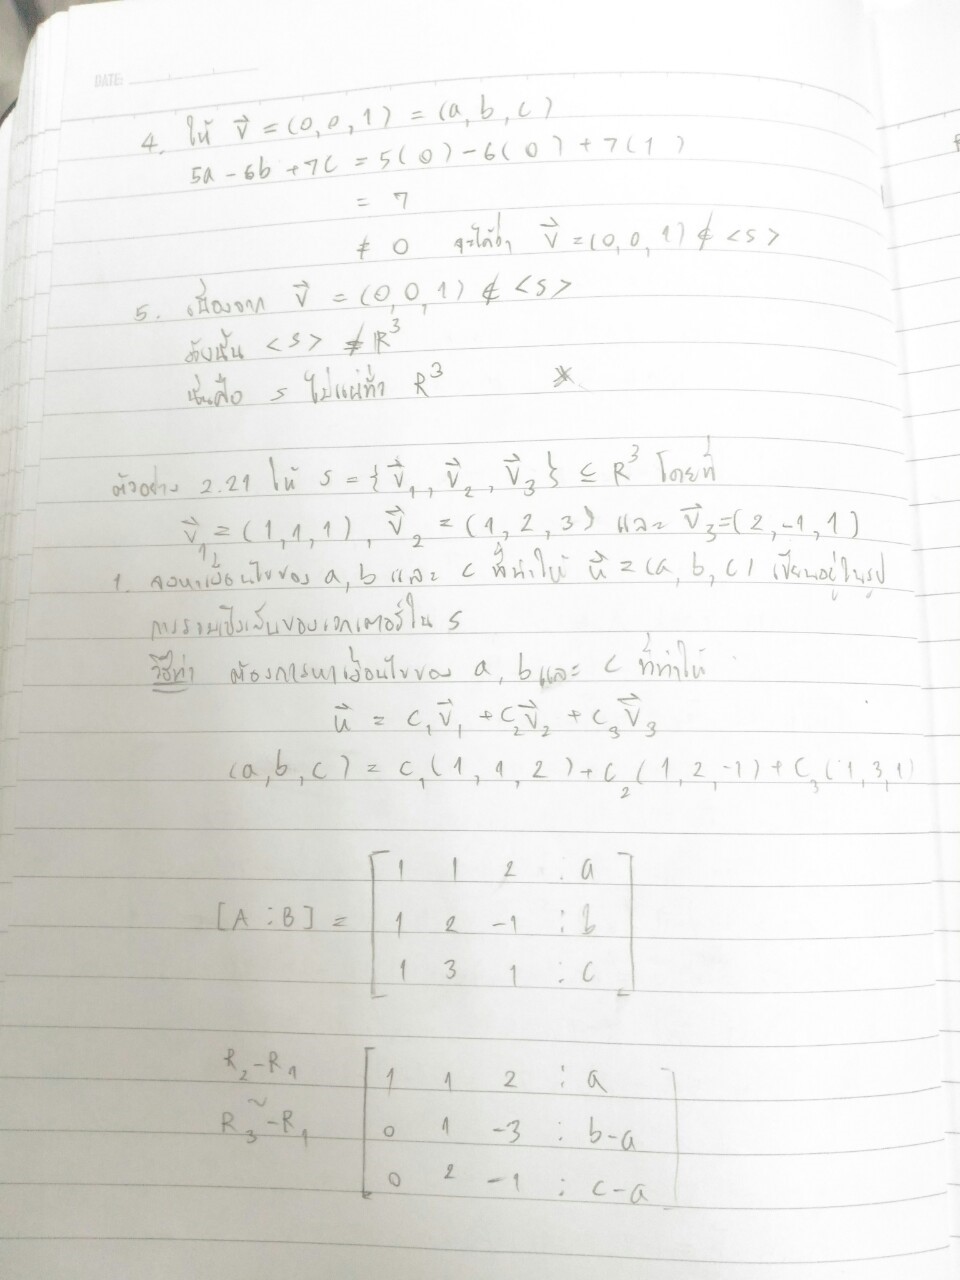 DATE:
4. ให้ v⃗ = (0, 0, 1) = (a, b, c)
5a - 6b + 7c = 5(0) - 6(0) + 7(1)
= 7
≠ 0 จะได้ว่า v⃗ = (0, 0, 1) ∉ <S>
5. เนื่องจาก v⃗ = (0, 0, 1) ∉ <S>
ดังนั้น <S> ≠ R³
นั่นคือ S ไม่แผ่ทั่ว R³ *
ตัวอย่าง 2.21 ให้ S = {v⃗₁, v⃗₂, v⃗₃} ⊆ R³ โดยที่
v⃗₁ = (1, 1, 1), v⃗₂ = (1, 2, 3) และ v⃗₃ = (2, -1, 1)
1. จงหาเงื่อนไขของ a, b และ c ที่ทำให้ u⃗ = (a, b, c) เขียนอยู่ในรูป
การรวมเชิงเส้นของเวกเตอร์ใน S
วิธีทำ ต้องการหาเงื่อนไขของ a, b และ c ที่ทำให้
u⃗ = c₁v⃗₁ + c₂v⃗₂ + c₃v⃗₃
(a, b, c) = c₁(1, 1, 2) + c₂(1, 2, -1) + c₃(1, 3, 1)
1 1 2 : a
[A : B] = 1 2 -1 : b
1 3 1 : c
R₂-R₁ 1 1 2 : a
~
R₃-R₁ 0 1 -3 : b-a
0 2 -1 : c-a